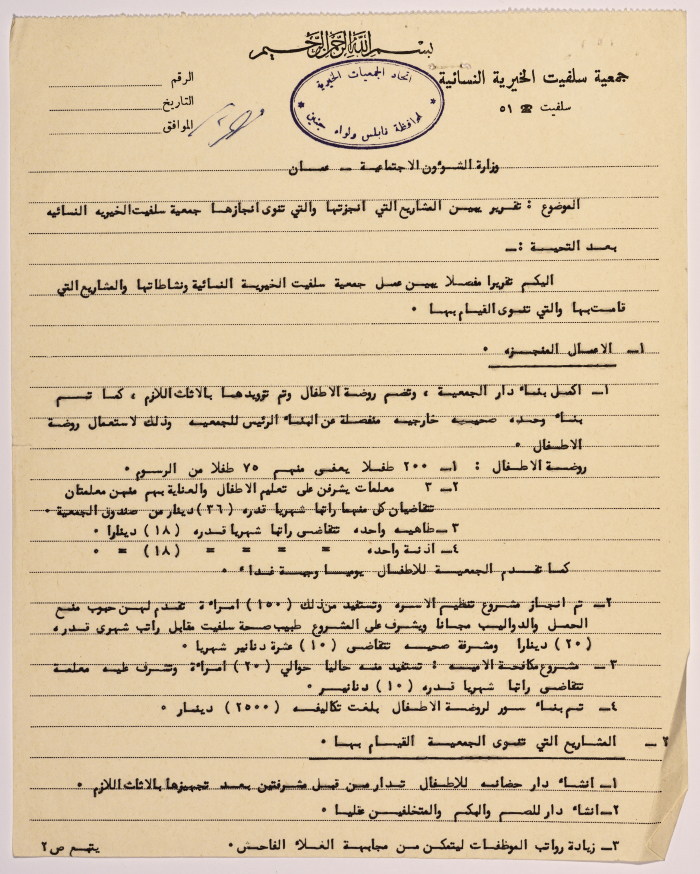 بسم الله الرحمن الرحيم
جمعية سلفيت الخيرية النسائية
سلفيت ☎ ٥١
اتحاد الجمعيات الخيرية
لمحافظة نابلس ولواء جنين
الرقم
التاريخ
الموافق
وزارة الشوءون الاجتماعية ــ عمــان
الموضوع : تقرير يبيــن المشاريع التي انجزتها والتي تنوى انجازهــا جمعية سلفيت الخيريه النسائيه
بعـد التحيـــة :ــ
اليكم تقريرا مفصـلا يبيـن عمـل جمعية سلفيت الخيريـة النسائية ونشاطاتها والمشاريع التي
قامـت بهـا والتي تنــوى القيــام بهــا ٠
١ــ الاعمـال المنجــزه ٠
١ــ اكمل بنـاء دار الجمعيـة ، وتضـم روضـة الاطفـال وتم تزويدهمـا بالاثاث اللازم ، كمـا تـــم
بنـاء وحـده صحيـه خارجيـه منفصلة عن البنـاء الرئيس للجمعيـه وذلك لاستعمال روضة
الاطفـال ٠
روضـة الاطفـال : ١ــ ٢٠٠ طفـلا يعفـى منهـم ٧٥ طفلا من الرسـوم ٠
٢ــ ٣ معلمات يشرفن على تعليم الاطفال والعناية بهم منهن معلمتان
تتقاضيان كل منهما راتبا شهريا قدره (٣٦) دينار من صندوق الجمعية ٠
٣ــ طاهيـه واحده تتقاضـى راتبا شهريا قـدره (١٨) دينارا ٠
٤ــ اذنـة واحده = = = = (١٨) = ٠
كمـا تقـدم الجمعيـة للاطفـال يوميـا وجبـة غـداء ٠
٢ــ تم انجـاز مشـروع تنظيـم الاسـره وتستفيد من ذلك (١٥٠) امراءة تقـدم لهـن حبوب منـع
الحمـل والدواليـب مجانـا ويشرف على المشروع طبيب صحة سلفيت مقابل راتب شهرى قدره
(٢٠) دينارا ومشرفـة صحيـه تتقاضـى (١٠) عشرة دنانير شهريا ٠
٣ــ مشـروع مكافحـة الاميـه : تستفيـد منـه حاليا حوالي (٢٠) امراءة وتشـرف عليـه معلمـة
تتقاضـى راتبـا شهريـا قـدره (١٠) دنانيـر ٠
٤ــ تـم بنـاء سـور لروضـة الاطفـال بلغت تكاليفـه (٢٥٠٠) دينـار ٠
٢ــ المشاريع التي تنـوى الجمعيـة القيـام بهـا ٠
١ــ انشـاء دار حضانـه للاطفـال تـدار مـن قبـل مشرفتين بعـد تجهيزهـا بالاثاث اللازم ٠
٢ــ انشـاء دار للصـم والبكـم والمتخلفيـن عقليـا ٠
٣ــ زيادة رواتب الموظفـات ليتمكـن مـن مجابهـة الغـلاء الفاحـش ٠
يتبــع ص٢